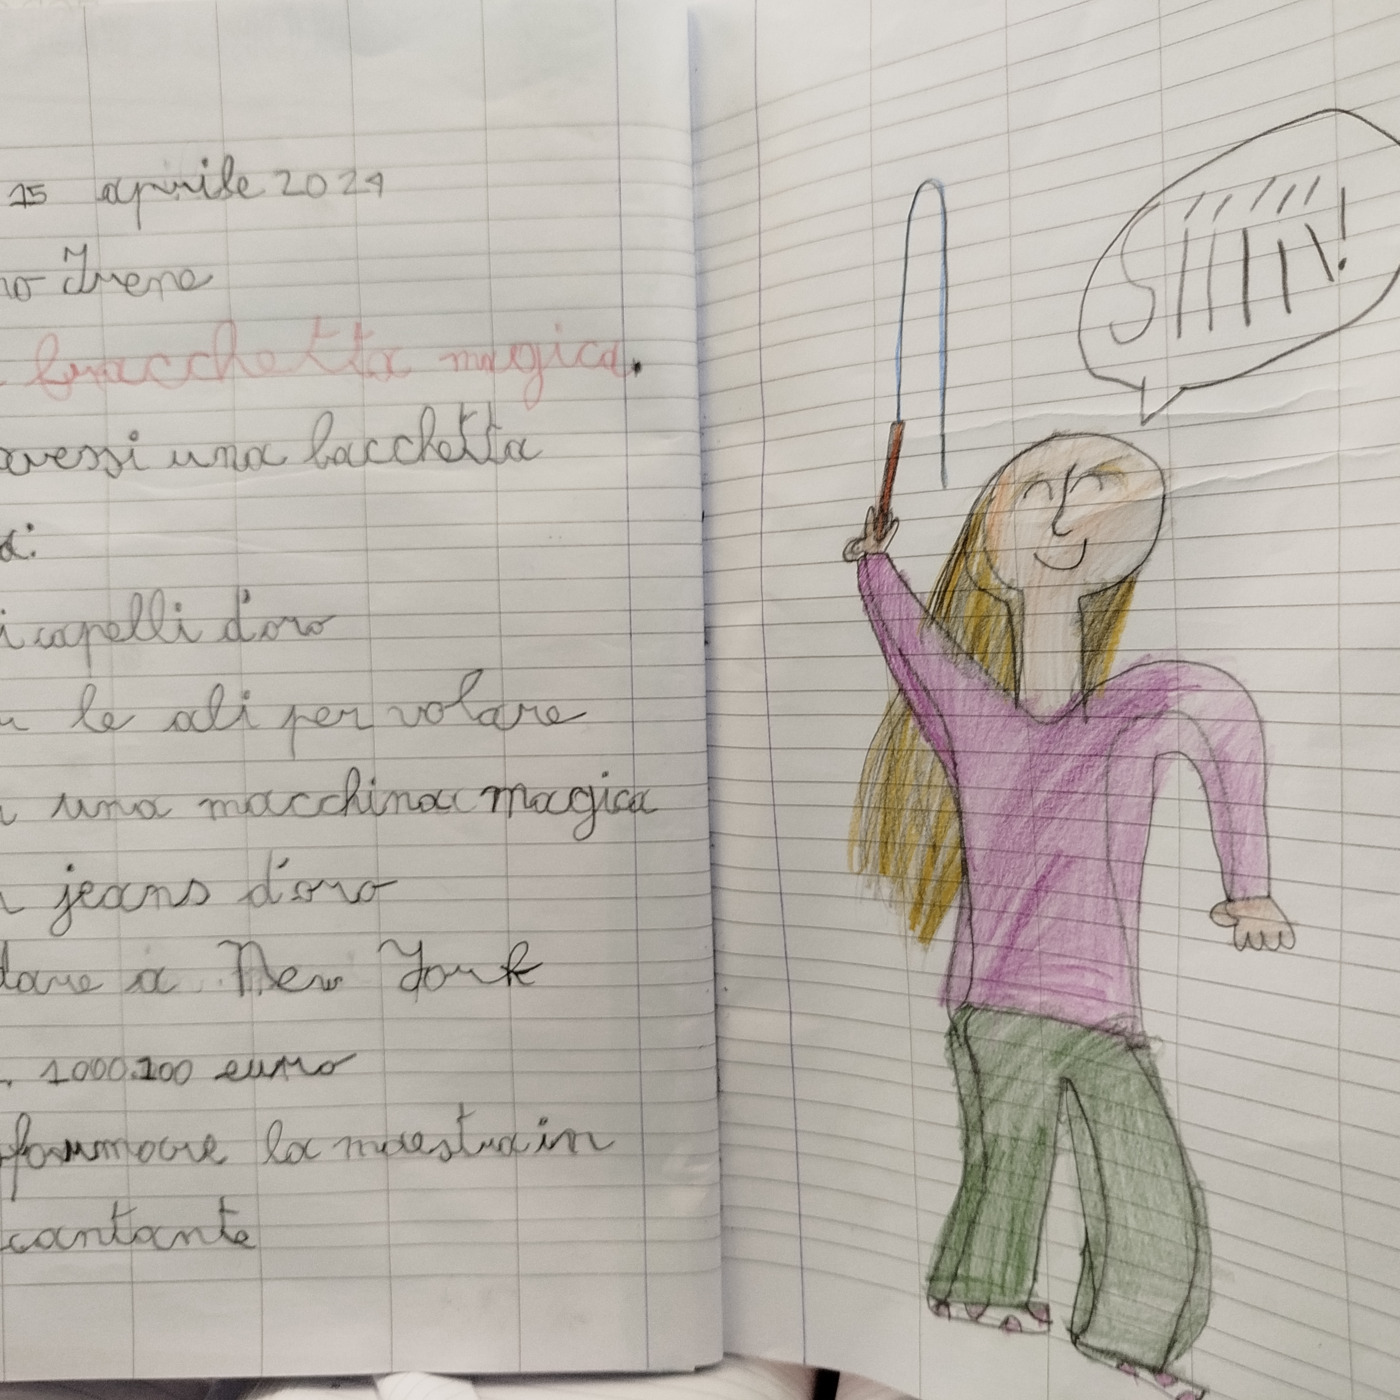 15 aprile 2024
no Irene
bracchetta magica.
avessi una bacchetta
a:
i capelli d'oro
le ali per volare
una macchina magica
jeans d'oro
dare a New York
1000.100 euro
formare la maestra in
cantante
SIIIII!